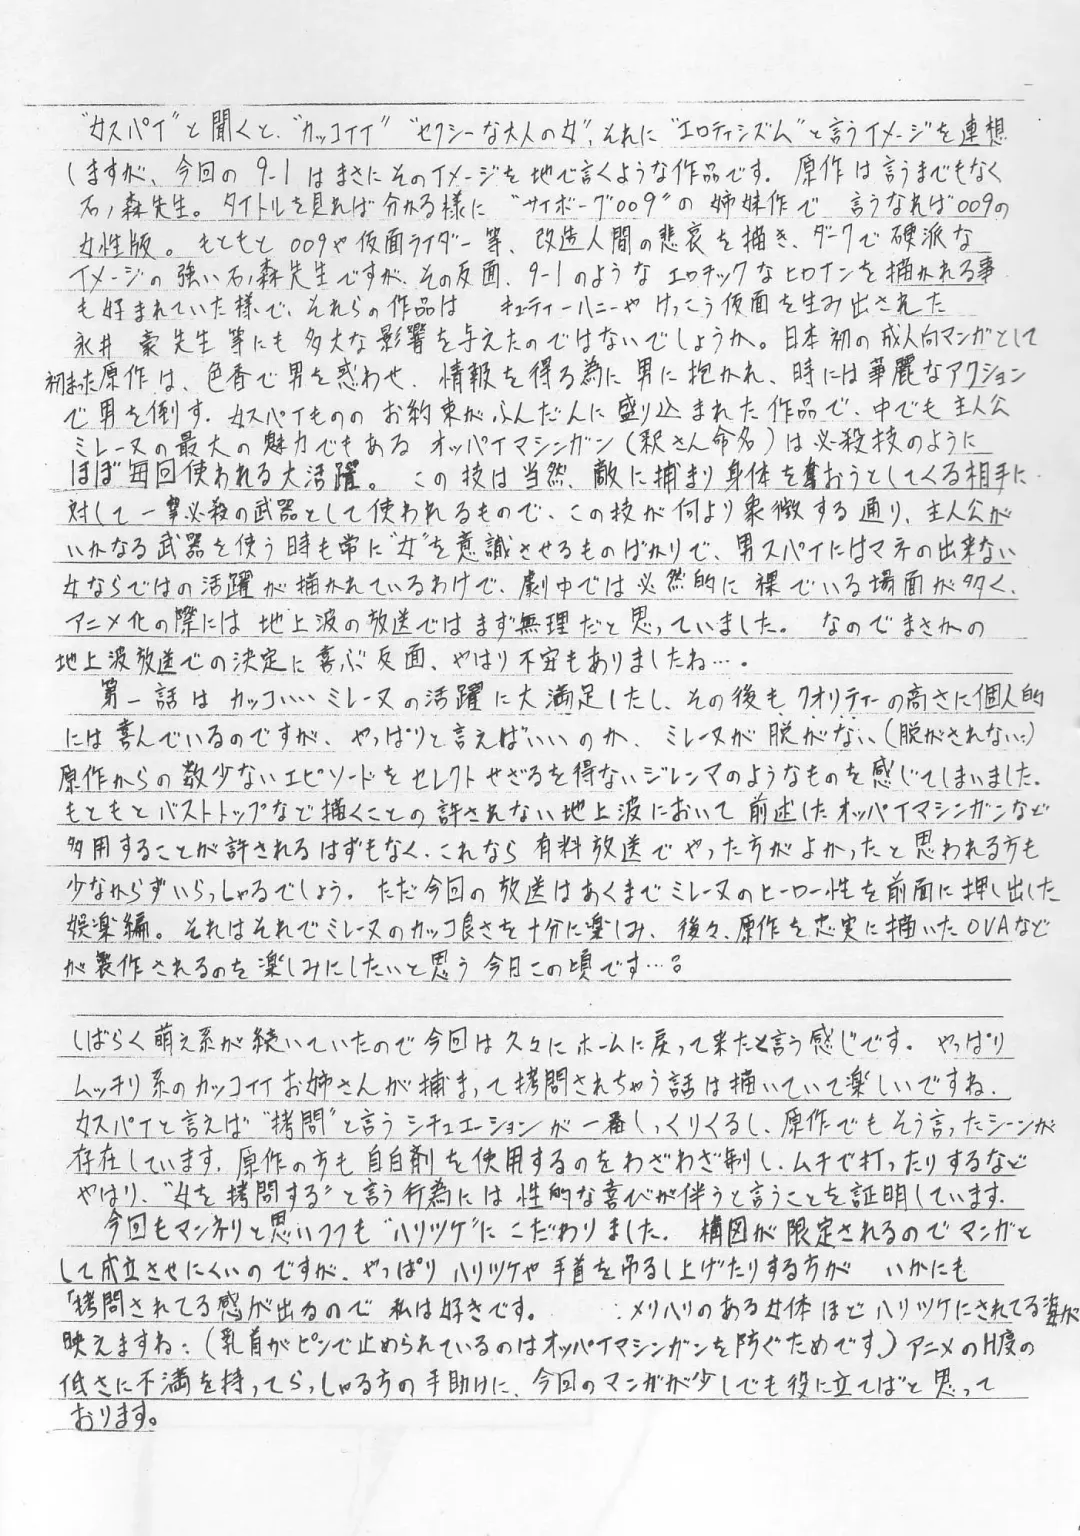 “女スパイ”と聞くと、“カッコイイ”“セクシーな大人の女”、それに“エロティシズム”と言うイメージを連想
しますが、今回の9-1はまさにそのイメージを地で言くような作品です。原作は言うまでもなく
石ノ森先生。タイトルを見れば分かる様に“サイボーグ009”の姉妹作で言うなれば009の
女性版。もともと009や仮面ライダー等、改造人間の悲哀を描き、ダークで硬派な
イメージの強い石ノ森先生ですが、その反面、9-1のようなエロチックなヒロインを描かれる事
も好まれていた様で、それらの作品は キューティーハニーやけっこう仮面を生み出された
永井 豪先生等にも多大な影響を与えたのではないでしょうか。日本初の成人向マンガとして
初まった原作は、色香で男を惑わせ、情報を得る為に男に抱かれ、時には華麗なアクション
で男を倒す、女スパイもののお約束がふんだんに盛り込まれた作品で、中でも主人公
ミレーヌの最大の魅力でもあるオッパイマシンガン(釈さん命名)は必殺技のように
ほぼ毎回使われる大活躍。この技は当然、敵に捕まり身体を奪おうとしてくる相手に
対して一撃必殺の武器として使われるもので、この技が何より象徴する通り、主人公が
いかなる武器を使う時も常に“女”を意識させるものばかりで、男スパイにはマネの出来ない
女ならではの活躍が描かれているわけで、劇中では必然的に裸でいる場面が多く、
アニメ化の際には地上波の放送ではまず無理だと思っていました。なのでまさかの
地上波放送での決定に喜ぶ反面、やはり不安もありましたね…。
第一話はカッコいいミレーヌの活躍に大満足したし、その後もクオリティーの高さに個人的
には喜んでいるのですが、やっぱりと言えばいいのか、ミレーヌが脱がない(脱がされない)
原作からの数少ないエピソードをセレクトせざるを得ないジレンマのようなものを感じてしまいました。
もともとバストトップなど描くことの許されない地上波において前述したオッパイマシンガンなど
多用することが許されるはずもなく、これなら有料放送でやった方がよかったと思われる方も
少なからずいらっしゃるでしょう。ただ今回の放送はあくまでミレーヌのヒーロー性を前面に押し出した
娯楽編。それはそれでミレーヌのカッコ良さを十分に楽しみ、後々、原作を忠実に描いたOVAなど
が製作されるのを楽しみにしたいと思う今日この頃です…。
しばらく萌え系が続いていたので今回は久々にホームに戻って来たと言う感じです。やっぱり
ムッチリ系のカッコイイお姉さんが捕まって拷問されちゃう話は描いていて楽しいですね、
女スパイと言えば“拷問”と言うシチュエーションが一番しっくりくるし、原作でもそう言ったシーンが
存在しています。原作の方も自白剤を使用するのをわざわざ制し、ムチで打ったりするなど
やはり、“女を拷問する”と言う行為には性的な喜びが伴うと言うことを証明しています。
今回もマンネリと思いつつも“ハリツケ”にこだわりました。構図が限定されるのでマンガと
して成立させにくいのですが、やっぱりハリツケや手首を吊るし上げたりする方がいかにも
「拷問されてる感が出るので私は好きです。メリハリのある女体ほどハリツケにされてる姿が
映えますね:(乳首がピンで止められているのはオッパイマシンガンを防ぐためです)アニメのH度の
低さに不満を持ってらっしゃる方の手助けに、今回のマンガが少しでも役に立てばと思って
おります。